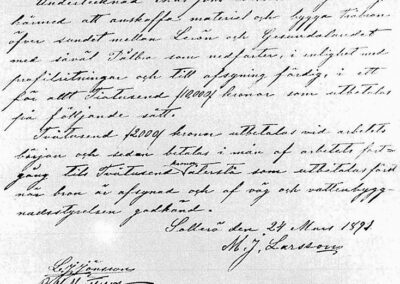 Undertecknad
härmed att anskaffa materiel och bygga träbron
öfver sundet mellan Lerön och Gesundalandet
med såväl Pålbro som nedfarter, i enlighet med
profilritningar och till afsyning färdig, i ett
för allt kronor som utbetalas
på följande sätt.
Tvåtusend /2000/ kronor utbetalas vid arbetets
början och sedan betalas i mån af arbetets fort-
gång tils kronor som utbetalas först
när bron är afsynad och af väg och vattenbygg-
nadsstyrelsen godkänd.
Sollerö den 24 Mars 1891
M. J. Larsson
Jönsson